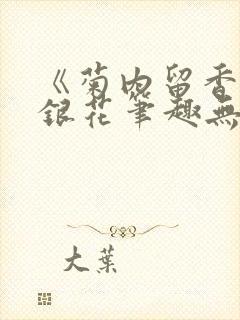 《菊内留香
銀花筆趣無
大葉